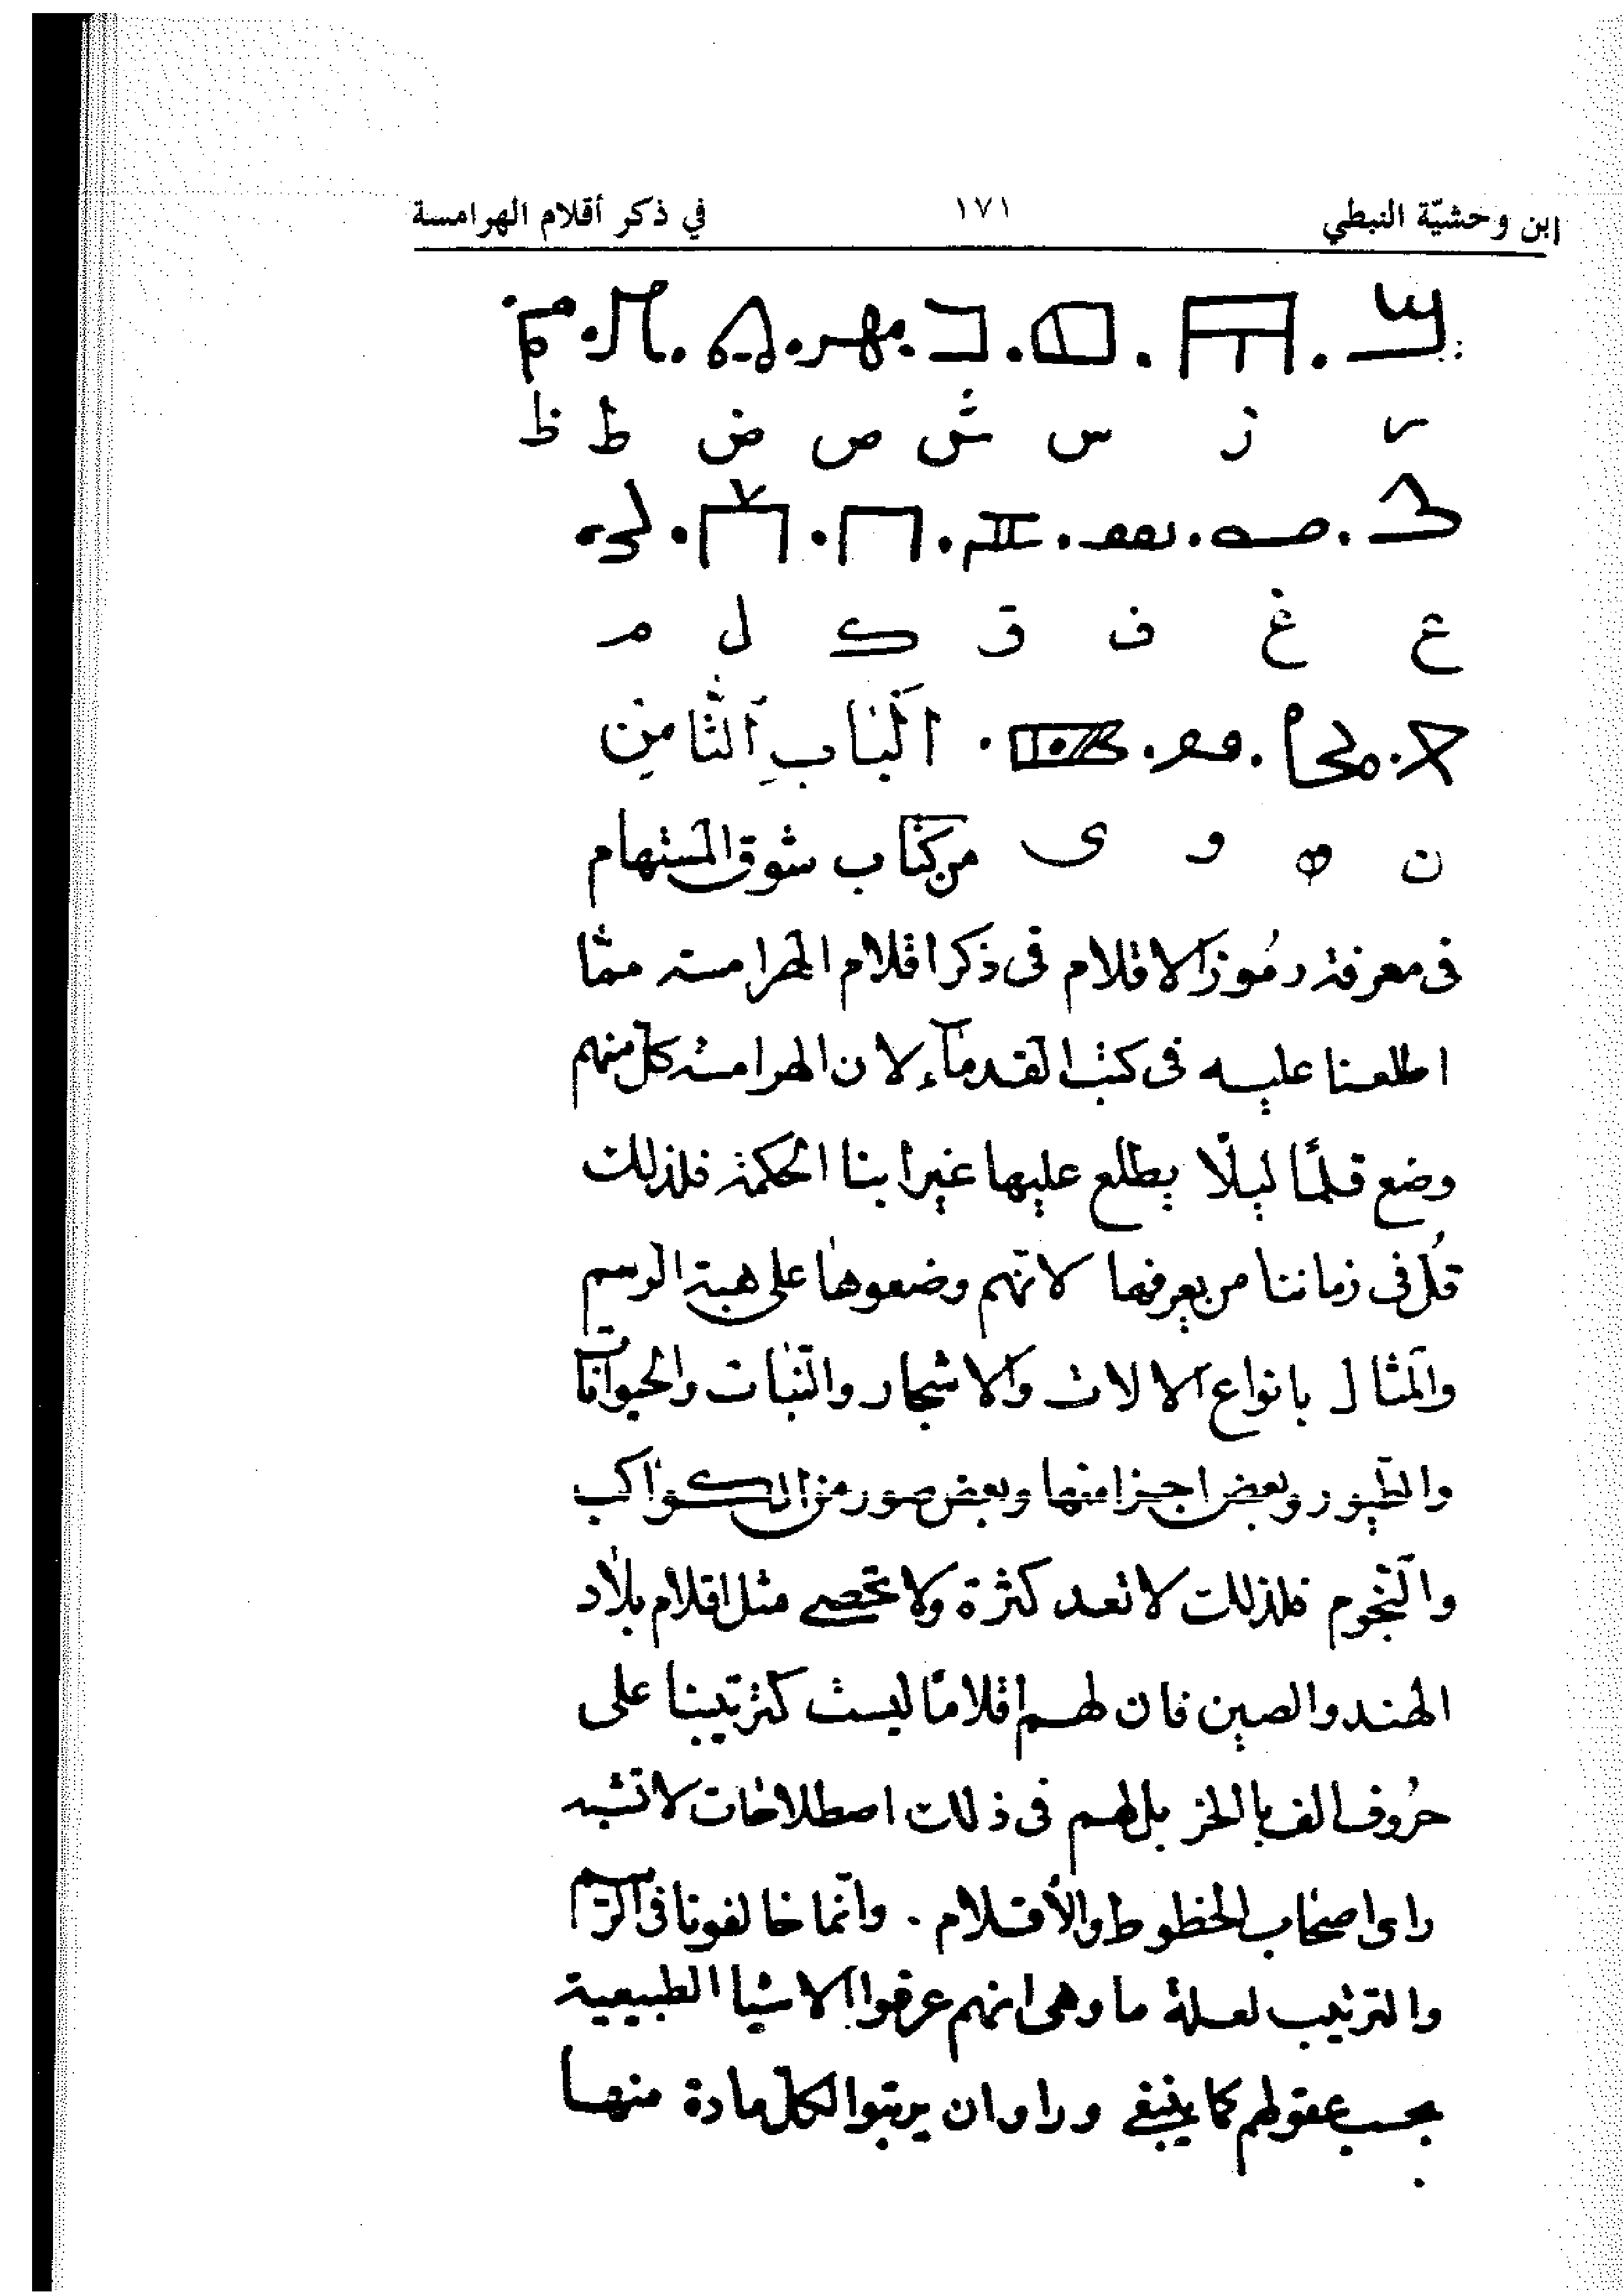 إبن وحشيّة النبطي ١٧١ في ذكر أقلام الهرامسة
ر ز س ش ص ض ط ظ
ع غ ف ق ك ل م
الباب الثامن
ن ه و ى من كتاب شوق المستهام
فى معرفة رموز الاقلام فى ذكر اقلام الهرامسة مما
اطلعنا عليه فى كتب القدماء لان الهرامسة كل منهم
وضع قلمًا ليلا يطلع عليها غير ابنا الحكمة فلذلك
قُل فى زماننا من يعرفها لانهم وضعوها على هبة الرسم
والمثال بانواع الالات والاشجار والنبات والحيوانات
والطيور وبعض اجزا منها وبعض صور من الكواكب
والنجوم فلذلك لا تعد كثرة ولا تحصى مثل اقلام بلاد
الهند والصين فان لهم اقلامًا ليست كترتيبنا على
حروف الف با الخ بل لهم فى ذلك اصطلاحات لا تشبه
راى اصحاب الخطوط والأقلام . وانما خالفونا فى الرسم
والترتيب لعلة ما وهى انهم عرفوا الاشيا الطبيعية
بحسب عقولهم كما ينبغى وراوا ان يرتبوا لكل مادة منها